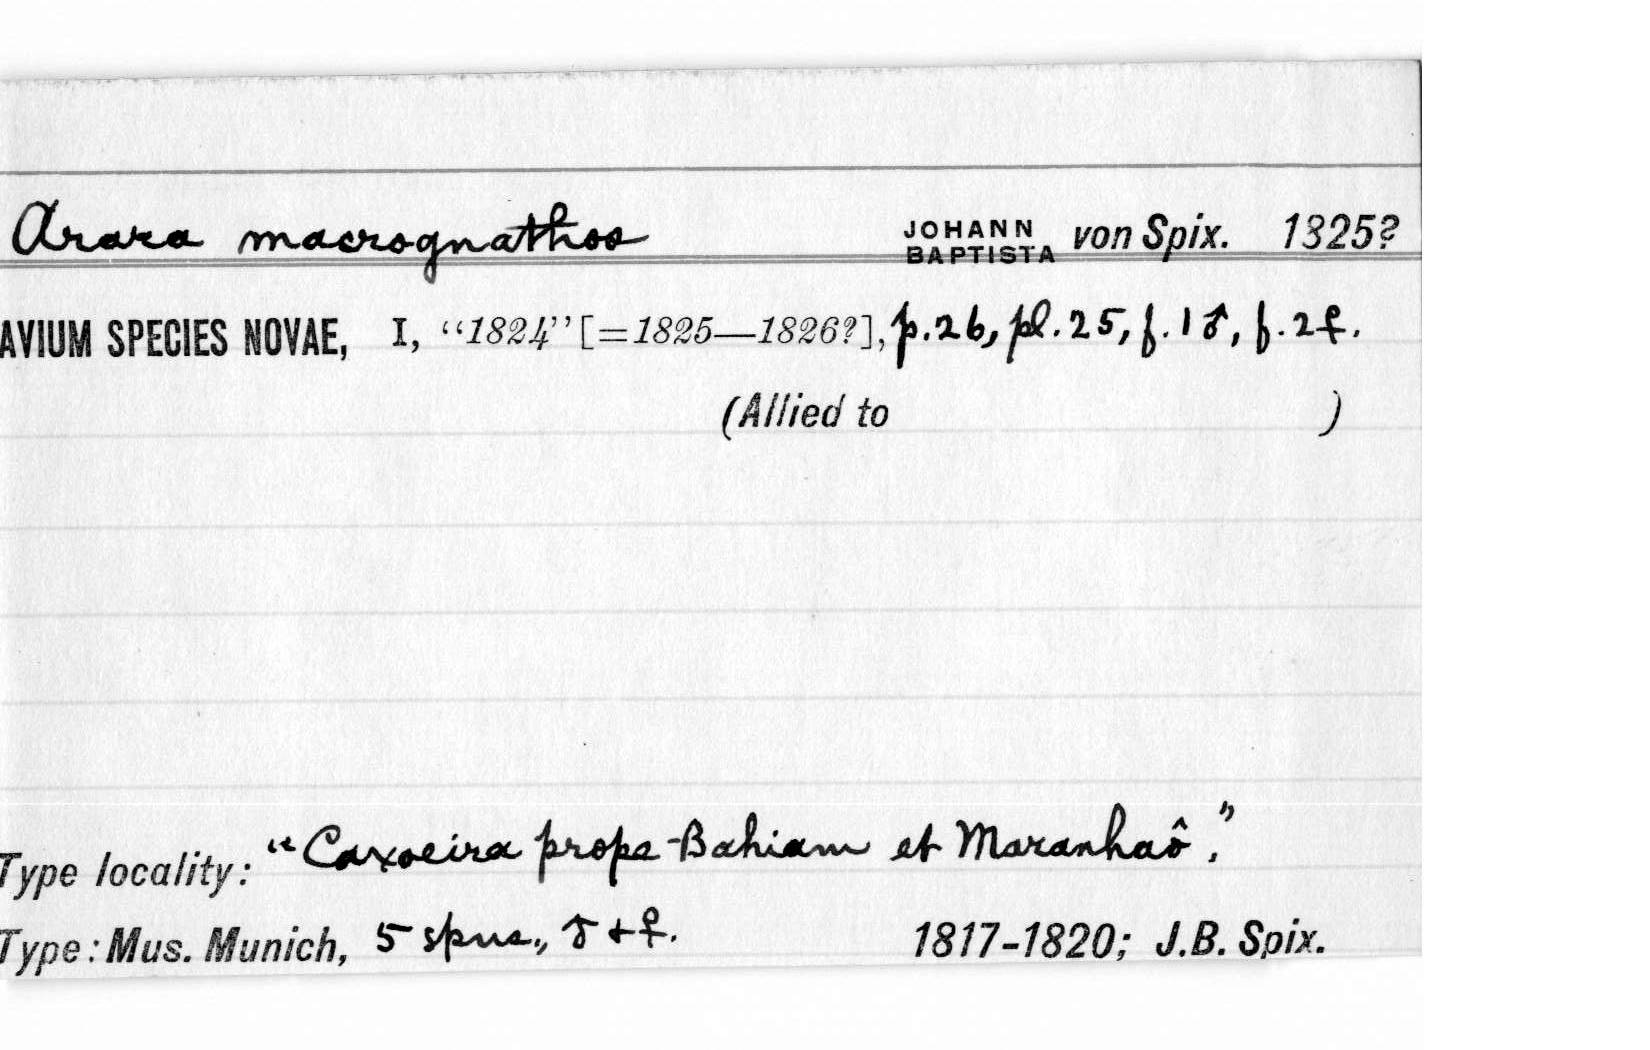 Arara macrognathos JOHANN BAPTISTA von Spix. 1825?
AVIUM SPECIES NOVAE, I, “1824” [=1825—1826?], p.26, pl.25, f.1♂, f.2♀.
(Allied to )
Type locality: “Caxoeira prope Bahiam et Maranhaô.”
Type: Mus. Munich, 5 spns., ♂+♀. 1817-1820; J.B. Spix.